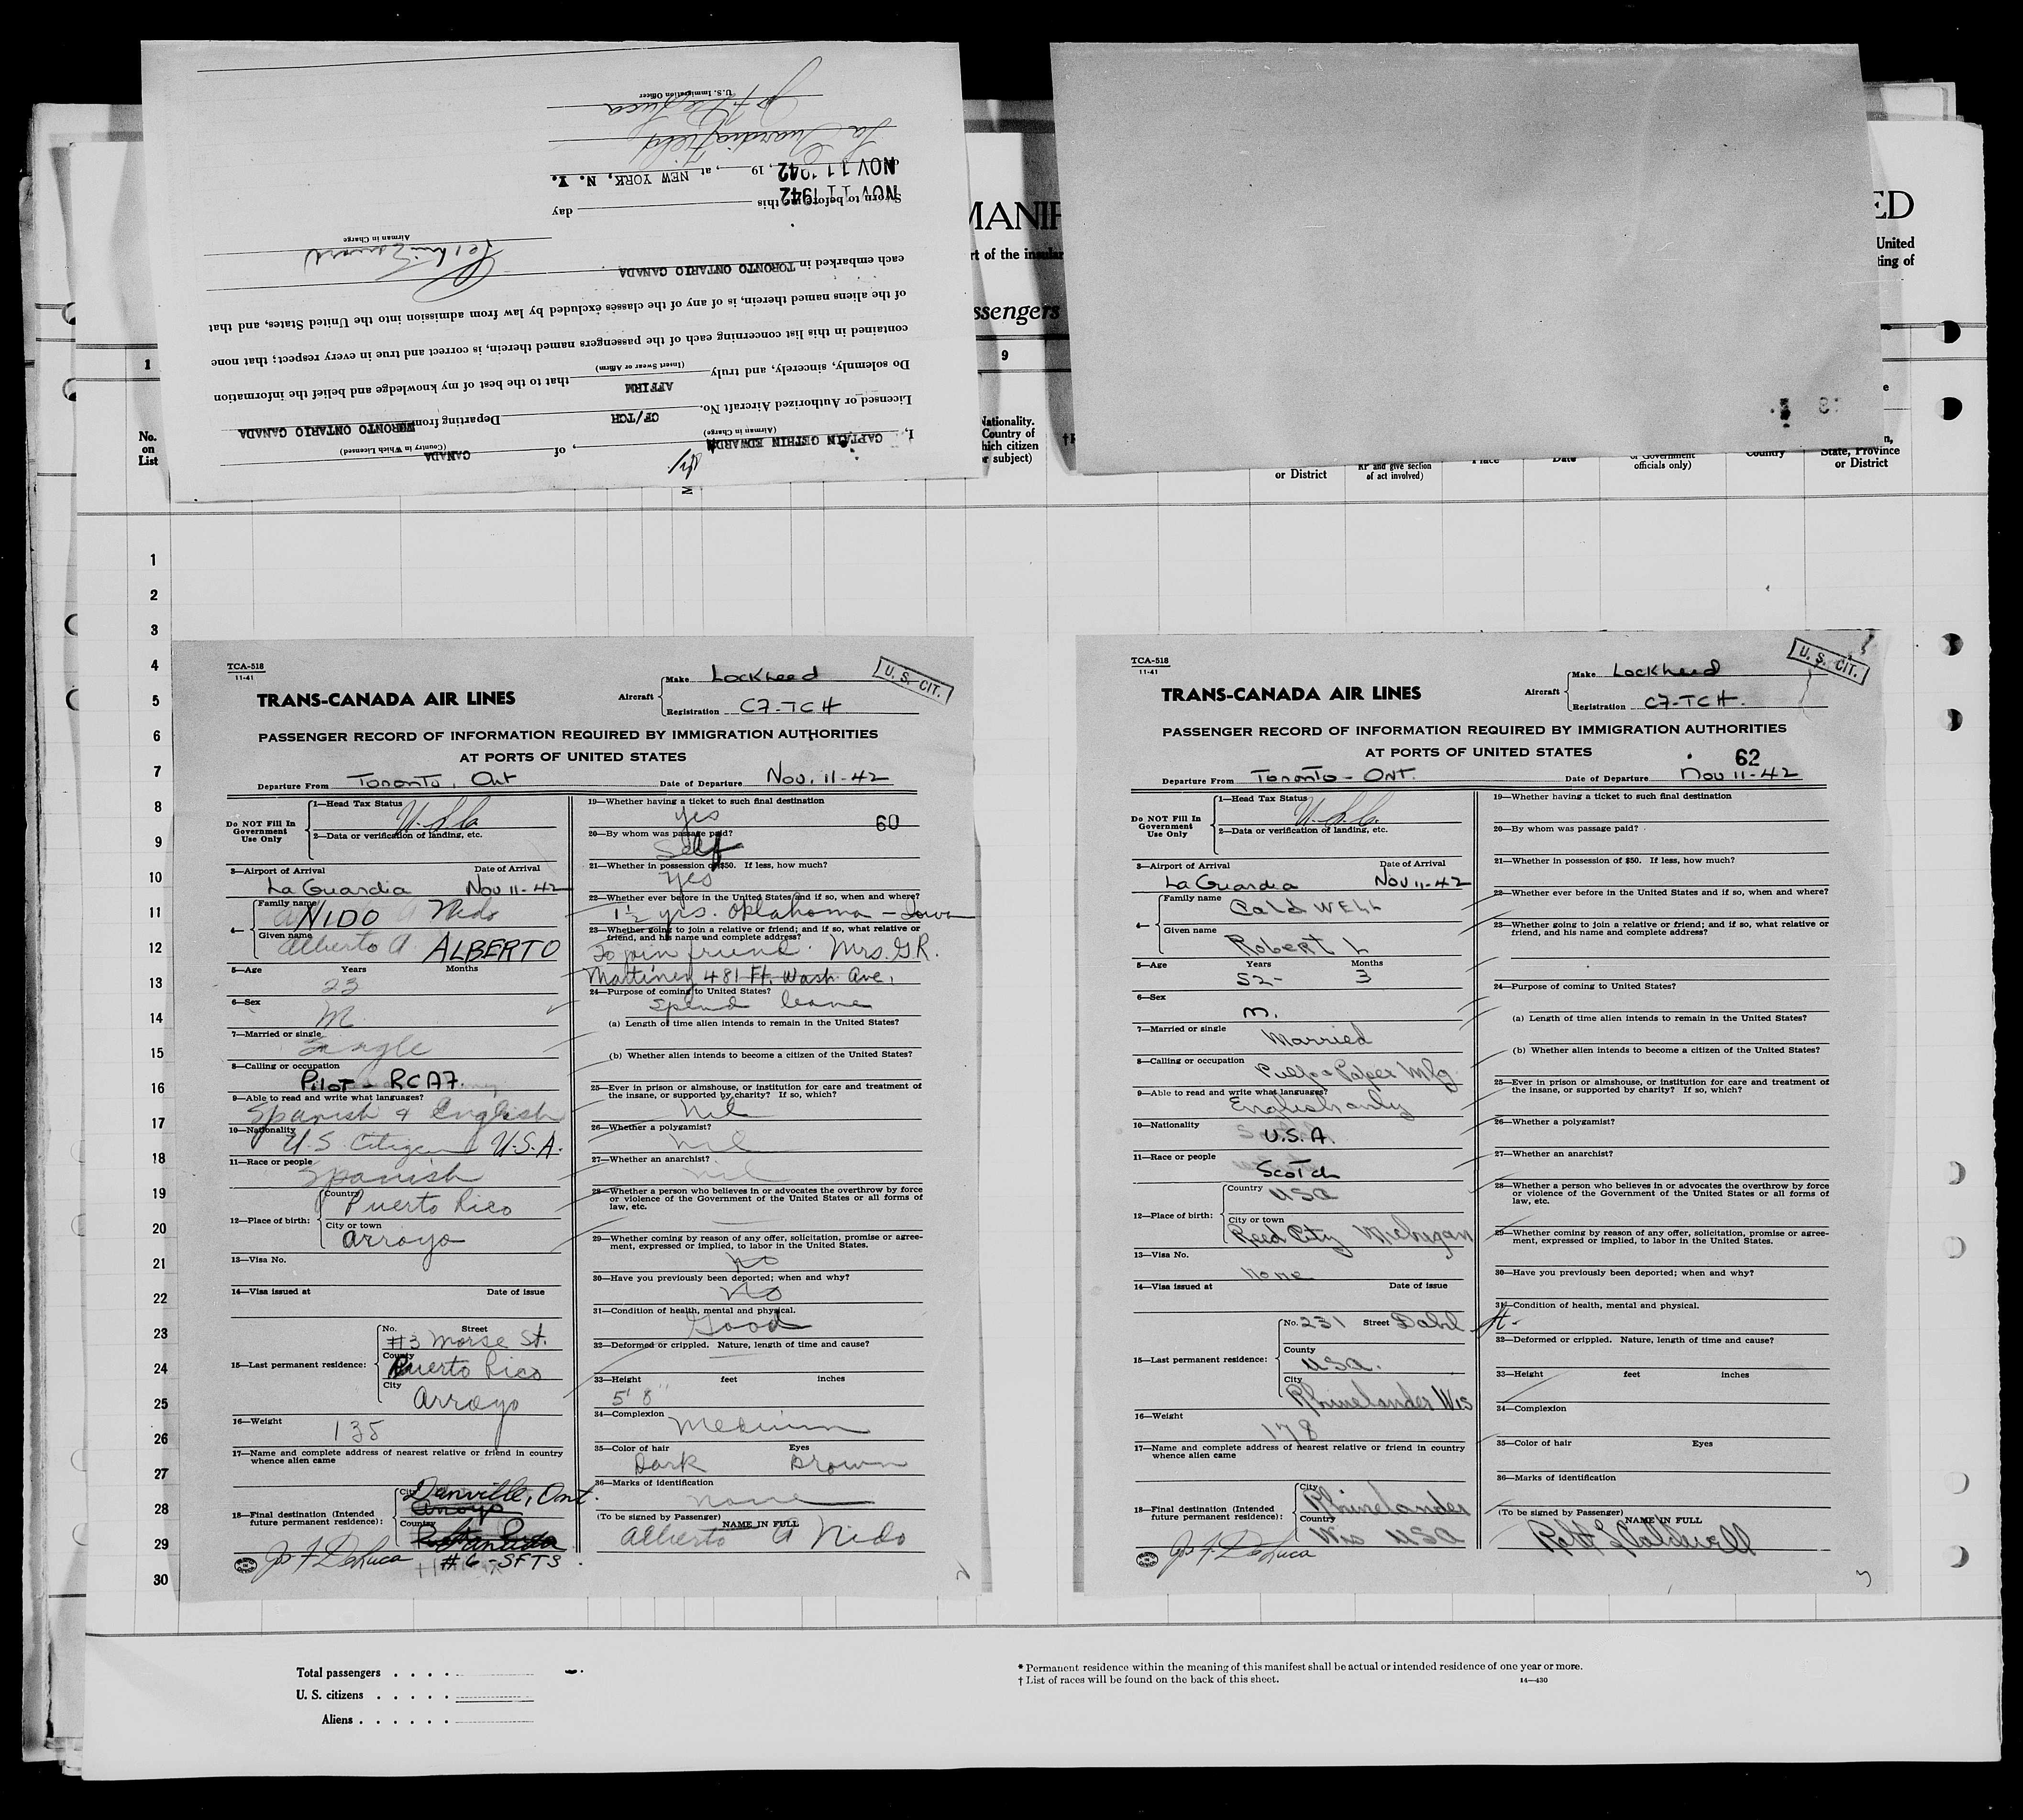 U.S. Immigration Officer
Jos F DeLuca
La Guardia Field
NOV 11 1942, 19 , at NEW YORK, N. Y.
NOV 11 1942
Sworn to before me this day
Airman in Charge
each embarked in TORONTO ONTARIO CANADA
of the aliens named therein, is of any of the classes excluded by law from admission into the United States, and that
contained in this list concerning each of the passengers named therein, is correct and true in every respect; that none
Do solemnly, sincerely, and truly AFFIRM that to the best of my knowledge and belief the information
(Insert Swear or Affirm)
Licensed or Authorized Aircraft No. CF/TCH Departing from TORONTO ONTARIO CANADA
I, CAPTAIN GETHIN EDWARDS, of CANADA
(Airman in Charge) (Country in Which Licensed)
MANIF
ED
rt of the insular
United
ting of
ssengers
1
9
No.
on
List
Nationality.
Country of
which citizen
or subject)
or District
RP and give section
of act involved)
Place
Date
or Government
officials only)
Country
State, Province
or District
1
2
3
4
5
6
7
8
9
10
11
12
13
14
15
16
17
18
19
20
21
22
23
24
25
26
27
28
29
30
TCA-518
11-41
TRANS-CANADA AIR LINES
Aircraft
Make Lockheed
Registration C7-TCH
U. S. CIT.
PASSENGER RECORD OF INFORMATION REQUIRED BY IMMIGRATION AUTHORITIES
AT PORTS OF UNITED STATES
Departure From Toronto, Ont Date of Departure Nov. 11-42
Do NOT Fill In
Government
Use Only
1—Head Tax Status
2—Data or verification of landing, etc.
3—Airport of Arrival Date of Arrival
La Guardia Nov 11-42
4— Family name NIDO Nido
Given name Alberto A. ALBERTO
5—Age Years Months
23
6—Sex
M
7—Married or single
Single
8—Calling or occupation
Pilot - RCA7
9—Able to read and write what languages?
Spanish & English
10—Nationality
U.S. Citizen U.S.A.
11—Race or people
Spanish
12—Place of birth: Country Puerto Rico
City or town Arroyo
13—Visa No.
14—Visa issued at Date of issue
15—Last permanent residence: No. Street
#3 Morse St.
County Puerto Rico
City Arroyo
16—Weight
135
17—Name and complete address of nearest relative or friend in country
whence alien came
18—Final destination (Intended
future permanent residence):
City Danville, Ont.
Arroyo
Country Canada
Jos F DeLuca #6-SFTS
19—Whether having a ticket to such final destination
yes
60
20—By whom was passage paid?
Self
21—Whether in possession of $50. If less, how much?
yes
22—Whether ever before in the United States and if so, when and where?
1½ yrs. Oklahoma - Iowa
23—Whether going to join a relative or friend; and if so, what relative or
friend, and his name and complete address?
To join friend. Mrs. G.R.
Martinez 481 Ft. Wash. Ave.
24—Purpose of coming to United States?
Spend leave
(a) Length of time alien intends to remain in the United States?
(b) Whether alien intends to become a citizen of the United States?
25—Ever in prison or almshouse, or institution for care and treatment of
the insane, or supported by charity? If so, which?
Nil
26—Whether a polygamist?
Nil
27—Whether an anarchist?
Nil
28—Whether a person who believes in or advocates the overthrow by force
or violence of the Government of the United States or all forms of
law, etc.
29—Whether coming by reason of any offer, solicitation, promise or agree-
ment, expressed or implied, to labor in the United States.
No
30—Have you previously been deported; when and why?
No
31—Condition of health, mental and physical.
Good
32—Deformed or crippled. Nature, length of time and cause?
33—Height feet inches
5' 8"
34—Complexion
Medium
35—Color of hair Eyes
Dark Brown
36—Marks of identification
None
(To be signed by Passenger) NAME IN FULL
Alberto A Nido
TCA-518
11-41
TRANS-CANADA AIR LINES
Aircraft
Make Lockheed
Registration C7-TCH.
U. S. CIT.
PASSENGER RECORD OF INFORMATION REQUIRED BY IMMIGRATION AUTHORITIES
AT PORTS OF UNITED STATES
62
Departure From Toronto - Ont. Date of Departure Nov 11-42
Do NOT Fill In
Government
Use Only
1—Head Tax Status
2—Data or verification of landing, etc.
3—Airport of Arrival Date of Arrival
La Guardia Nov 11-42
4— Family name Caldwell
Given name Robert L
5—Age Years Months
52- 3
6—Sex
M.
7—Married or single
Married
8—Calling or occupation
Pulp & Paper Mfg
9—Able to read and write what languages?
English only
10—Nationality
U.S.A.
11—Race or people
Scotch
12—Place of birth: Country USA
City or town Reed City Michigan
13—Visa No.
None
14—Visa issued at Date of issue
15—Last permanent residence: No. 231 Street Dahl St.
County USA.
City Rhinelander Wis
16—Weight
178
17—Name and complete address of nearest relative or friend in country
whence alien came
18—Final destination (Intended
future permanent residence):
City Rhinelander
Country Wis USA
Jos F DeLuca
19—Whether having a ticket to such final destination
20—By whom was passage paid?
21—Whether in possession of $50. If less, how much?
22—Whether ever before in the United States and if so, when and where?
23—Whether going to join a relative or friend; and if so, what relative or
friend, and his name and complete address?
24—Purpose of coming to United States?
(a) Length of time alien intends to remain in the United States?
(b) Whether alien intends to become a citizen of the United States?
25—Ever in prison or almshouse, or institution for care and treatment of
the insane, or supported by charity? If so, which?
26—Whether a polygamist?
27—Whether an anarchist?
28—Whether a person who believes in or advocates the overthrow by force
or violence of the Government of the United States or all forms of
law, etc.
29—Whether coming by reason of any offer, solicitation, promise or agree-
ment, expressed or implied, to labor in the United States.
30—Have you previously been deported; when and why?
31—Condition of health, mental and physical.
32—Deformed or crippled. Nature, length of time and cause?
33—Height feet inches
34—Complexion
35—Color of hair Eyes
36—Marks of identification
(To be signed by Passenger) NAME IN FULL
Robt L Caldwell
Total passengers . . . .
U. S. citizens . . . . .
Aliens . . . . . .
* Permanent residence within the meaning of this manifest shall be actual or intended residence of one year or more.
† List of races will be found on the back of this sheet. 14—430